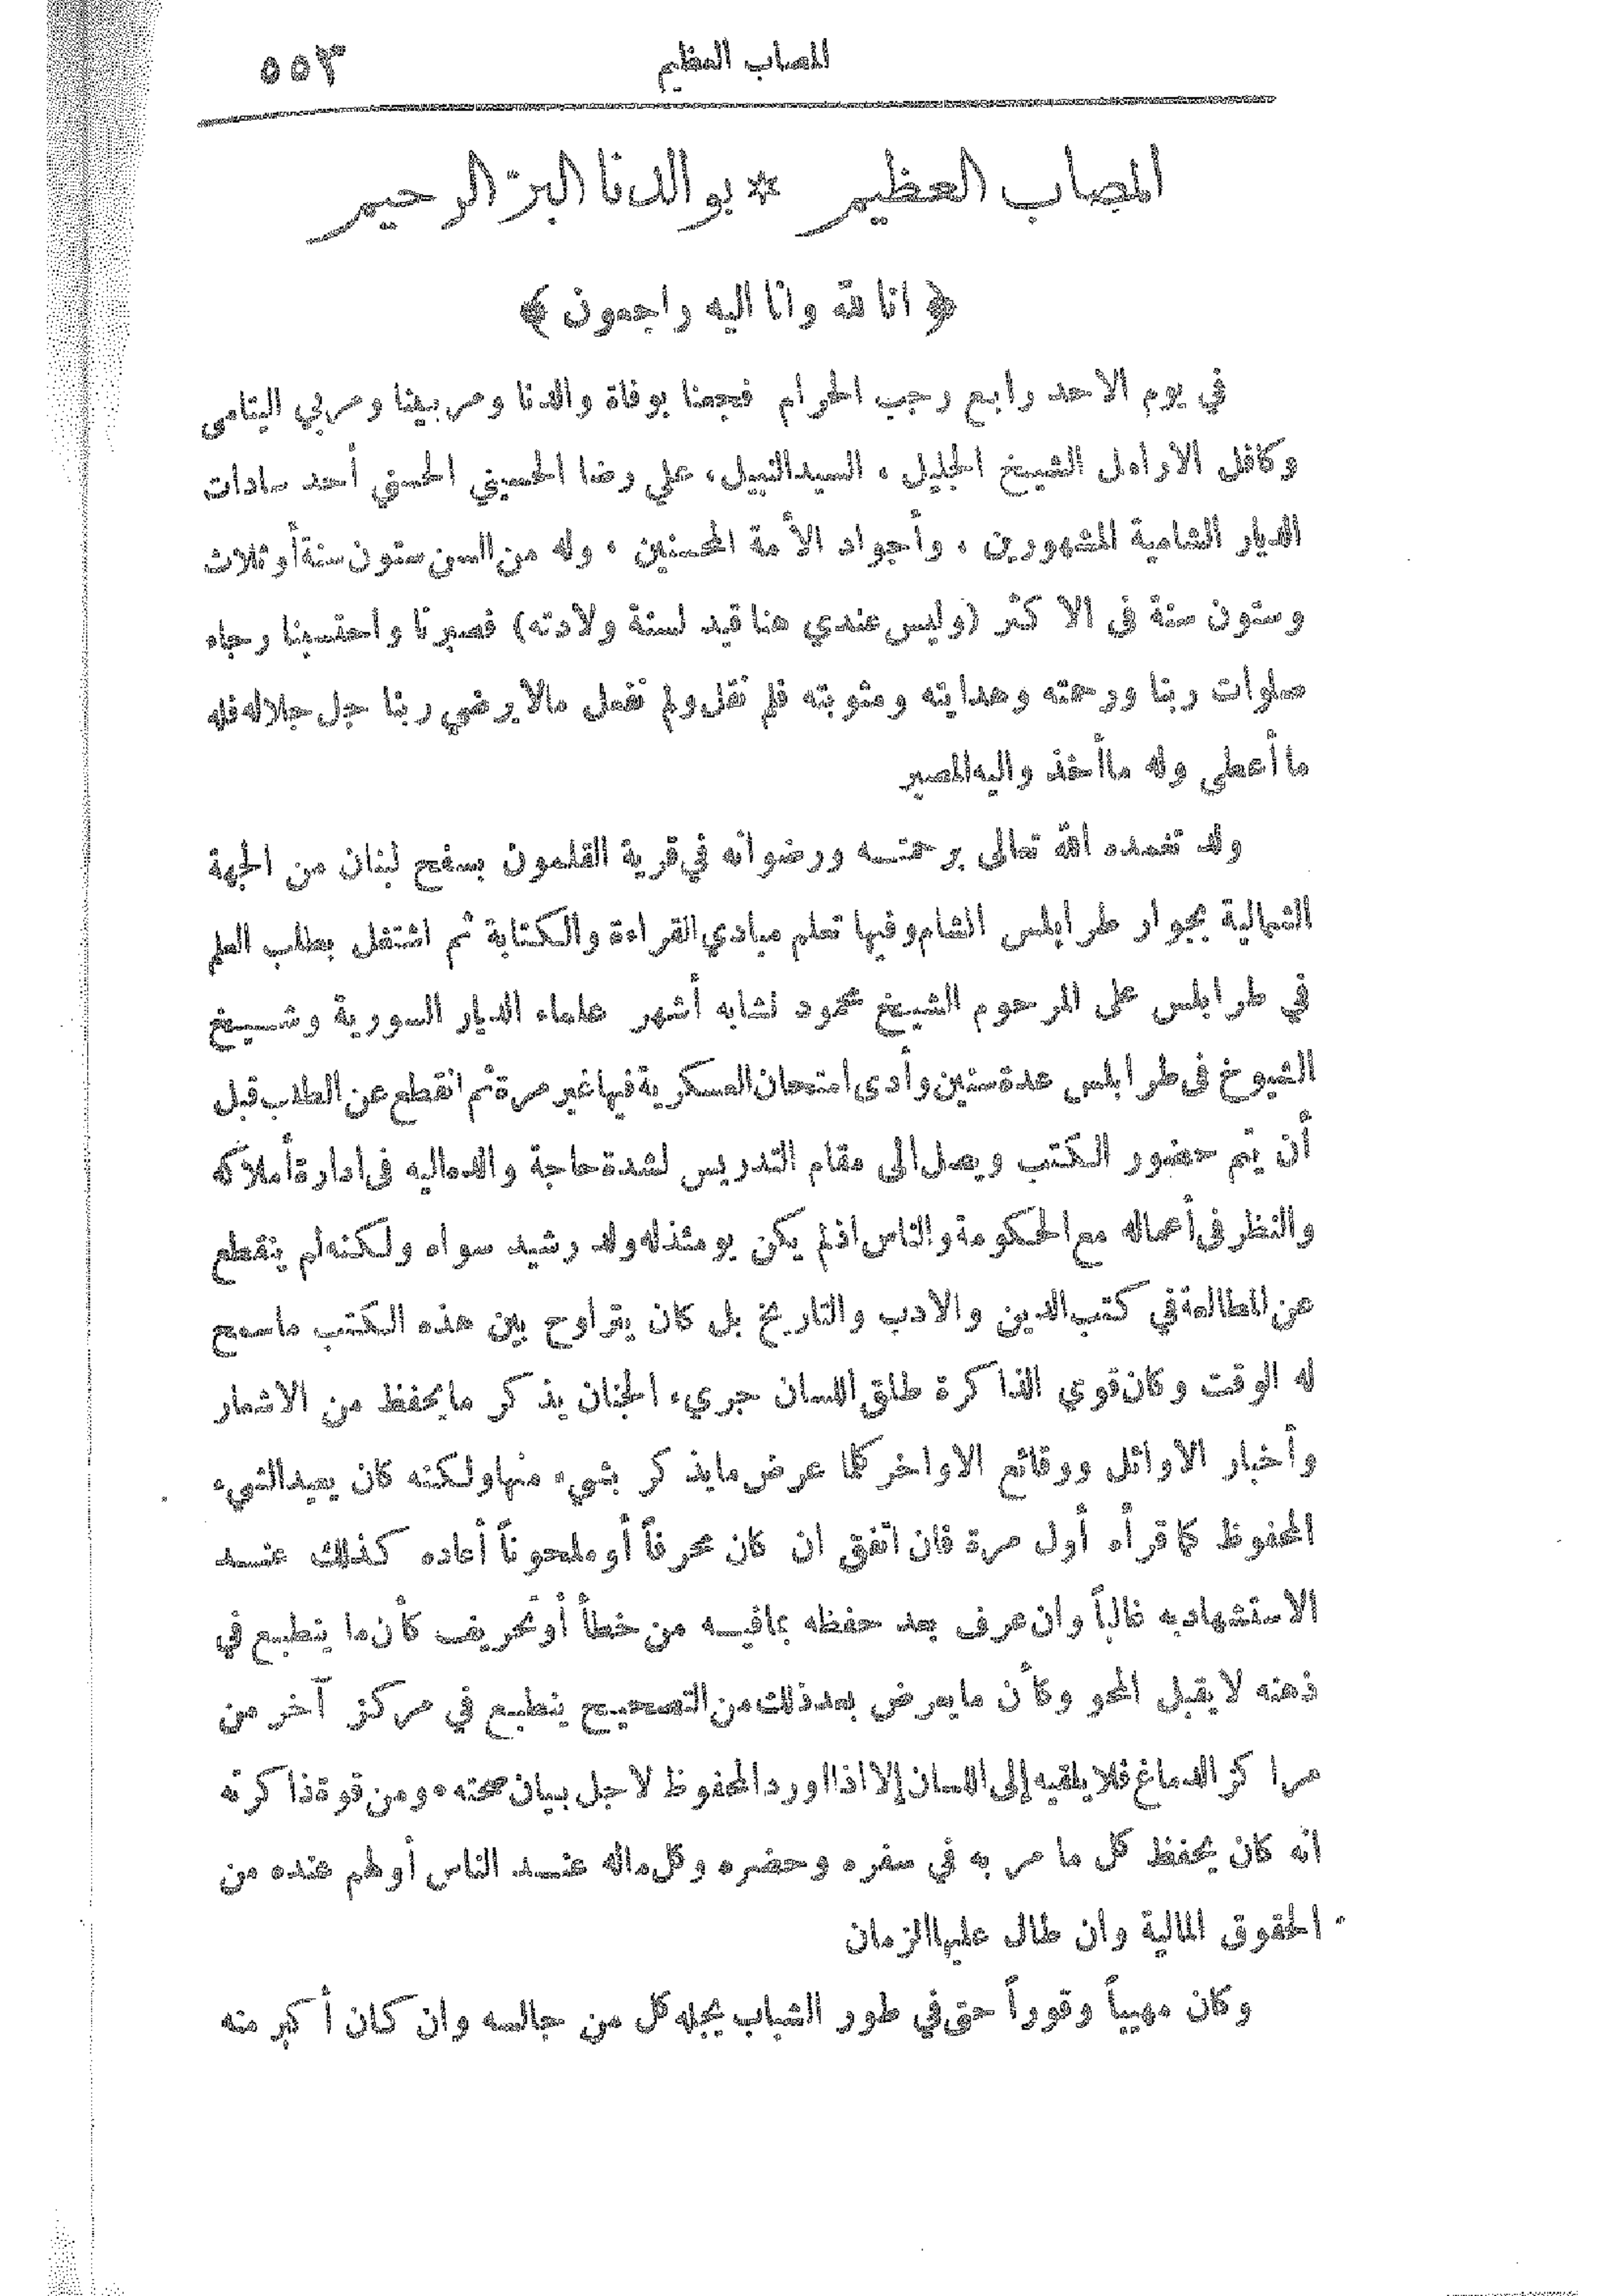 المصاب العظيم ٥٥٣
المصاب العظيم * بوالدنا البرّ الرحيم
﴿ انا لله وانا اليه راجعون ﴾
في يوم الاحد رابع رجب الحرام فجعنا بوفاة والدنا ومربينا ومربي اليتامى
وكافل الارامل الشيخ الجليل ، السيد النبيل ، علي رضا الحسيني الحسني أحد سادات
الديار الشامية المشهورين ، وأجواد الأمة المحسنين ، وله من السن ستون سنة أو ثلاث
وستون سنة في الاكثر (وليس عندي هنا قيد لسنة ولادته) فصبرنا واحتسبنا رجاء
صلوات ربنا ورحمته وهدايته ومثوبته فلم نقل ولم نفعل مالا يرضي ربنا جل جلاله فله
ما أعطى وله ما أخذ واليه المصير
ولد تغمده الله تعالى برحمته ورضوانه في قرية القلمون بسفح لبنان من الجهة
الشمالية بجوار طرابلس الشام وفيها تعلم مبادي القراءة والكتابة ثم اشتغل بطلب العلم
في طرابلس على المرحوم الشيخ محمود نشابه أشهر علماء الديار السورية وشيخ
الشيوخ في طرابلس عدة سنين وأدى امتحان العسكرية فيها غير مرة ثم انقطع عن الطلب قبل
أن يتم حضور الكتب ويصل الى مقام التدريس لشدة حاجة والده اليه في ادارة أملاكه
والنظر في أعماله مع الحكومة والناس اذ لم يكن يومئذ له ولد رشيد سواه ولكنه لم ينقطع
عن المطالعة في كتب الدين والادب والتاريخ بل كان يتراوح بين هذه الكتب ما سمح
له الوقت وكان قوي الذاكرة طلق اللسان جريء الجنان يذكر ما يحفظ من الاشعار
وأخبار الاوائل ووقائع الاواخر كلما عرض ما يذكر بشيء منها ولكنه كان يعيد الشيء
المحفوظ كما قرأه أول مرة فان اتفق ان كان محرفاً أو ملحوناً أعاده كذلك عند
الاستشهاد به غالباً وان عرف بعد حفظه بما فيه من خطأ أو تحريف كأن ما ينطبع في
ذهنه لا يقبل المحو وكأن ما يعرض بعد ذلك من التصحيح ينطبع في مركز آخر من
مراكز الدماغ فلا يلقيه إلى اللسان إلا اذا اورد المحفوظ لاجل بيان صحته . ومن قوة ذاكرته
انه كان يحفظ كل ما مر به في سفره وحضره وكل ماله عند الناس أو لهم عنده من
الحقوق المالية وان طال عليها الزمان
وكان مهيباً وقوراً حتى في طور الشباب يجله كل من جالسه وان كان أكبر منه